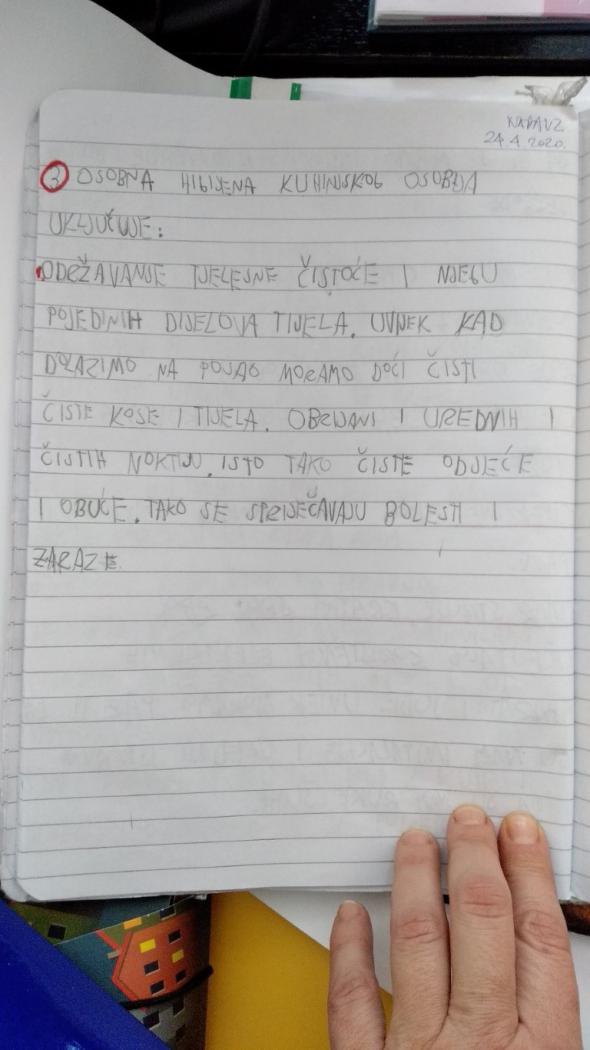 24.4.2020.
3 OSOBNA HIGIJENA KUHINJSKOG OSOBLJA
UKLJUČUJE:
ODRŽAVANJE TJELESNE ČISTOĆE I NJEGU
POJEDINIH DIJELOVA TIJELA. UVIJEK KAD
DOLAZIMO NA POSAO MORAMO DOĆI ČISTI
ČISTE KOSE I TIJELA. OBRIJANI I UREDNIH I
ČISTIH NOKTIJU. ISTO TAKO ČISTE ODJEĆE
I OBUĆE. TAKO SE SPRIJEČAVAJU BOLESTI I
ZARAZE.